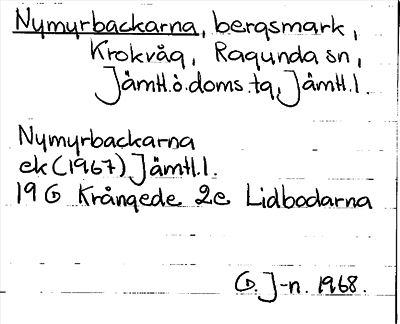 Nymyrbackarna, bergsmark,
Krokvåg, Ragunda sn,
Jämtl.ö.doms.tg, Jämtl.l.
Nymyrbackarna
ek (1967) Jämtl.l.
19 G Krångede 2e Lidbodarna
G. J-n. 1968.